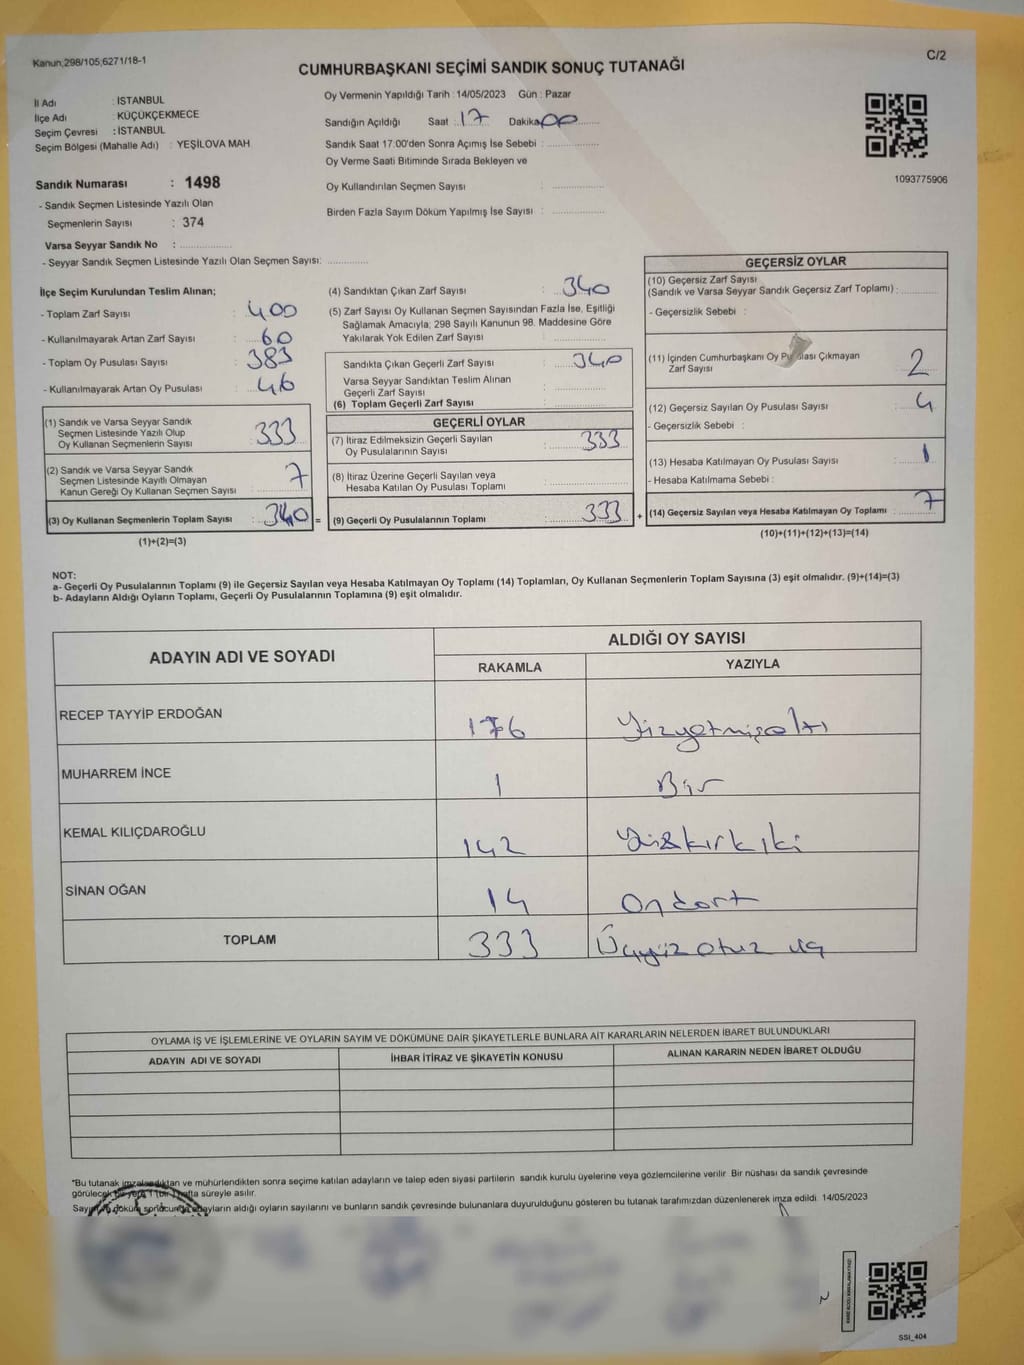 Kanun;298/105;6271/18-1
C/2
CUMHURBAŞKANI SEÇİMİ SANDIK SONUÇ TUTANAĞI
İl Adı : İSTANBUL
İlçe Adı : KÜÇÜKÇEKMECE
Seçim Çevresi : İSTANBUL
Seçim Bölgesi (Mahalle Adı) : YEŞİLOVA MAH
Oy Vermenin Yapıldığı Tarih : 14/05/2023 Gün : Pazar
Sandığın Açıldığı Saat : 17 Dakika 00
Sandık Saat 17:00'den Sonra Açımış İse Sebebi :
Oy Verme Saati Bitiminde Sırada Bekleyen ve
Oy Kullandırılan Seçmen Sayısı :
Birden Fazla Sayım Döküm Yapılmış İse Sayısı :
1093775906
Sandık Numarası : 1498
- Sandık Seçmen Listesinde Yazılı Olan
Seçmenlerin Sayısı : 374
Varsa Seyyar Sandık No :
- Seyyar Sandık Seçmen Listesinde Yazılı Olan Seçmen Sayısı:
İlçe Seçim Kurulundan Teslim Alınan;
- Toplam Zarf Sayısı : 400
- Kullanılmayarak Artan Zarf Sayısı : 60
- Toplam Oy Pusulası Sayısı : 383
- Kullanılmayarak Artan Oy Pusulası : 46
(1) Sandık ve Varsa Seyyar Sandık
Seçmen Listesinde Yazılı Olup
Oy Kullanan Seçmenlerin Sayısı : 333
(2) Sandık ve Varsa Seyyar Sandık
Seçmen Listesinde Kayıtlı Olmayan
Kanun Gereği Oy Kullanan Seçmen Sayısı : 7
(3) Oy Kullanan Seçmenlerin Toplam Sayısı : 340 =
(1)+(2)=(3)
(4) Sandıktan Çıkan Zarf Sayısı : 340
(5) Zarf Sayısı Oy Kullanan Seçmen Sayısından Fazla İse, Eşitliği
Sağlamak Amacıyla; 298 Sayılı Kanunun 98. Maddesine Göre
Yakılarak Yok Edilen Zarf Sayısı :
Sandıkta Çıkan Geçerli Zarf Sayısı : 340
Varsa Seyyar Sandıktan Teslim Alınan
Geçerli Zarf Sayısı :
(6) Toplam Geçerli Zarf Sayısı :
GEÇERLİ OYLAR
(7) İtiraz Edilmeksizin Geçerli Sayılan
Oy Pusulalarının Sayısı : 333
(8) İtiraz Üzerine Geçerli Sayılan veya
Hesaba Katılan Oy Pusulası Toplamı :
(9) Geçerli Oy Pusulalarının Toplamı : 333 +
GEÇERSİZ OYLAR
(10) Geçersiz Zarf Sayısı
(Sandık ve Varsa Seyyar Sandık Geçersiz Zarf Toplamı) :
- Geçersizlik Sebebi :
(11) İçinden Cumhurbaşkanı Oy Pusulası Çıkmayan
Zarf Sayısı : 2
(12) Geçersiz Sayılan Oy Pusulası Sayısı : 4
- Geçersizlik Sebebi :
(13) Hesaba Katılmayan Oy Pusulası Sayısı : 1
- Hesaba Katılmama Sebebi :
(14) Geçersiz Sayılan veya Hesaba Katılmayan Oy Toplamı : 7
(10)+(11)+(12)+(13)=(14)
NOT:
a- Geçerli Oy Pusulalarının Toplamı (9) ile Geçersiz Sayılan veya Hesaba Katılmayan Oy Toplamı (14) Toplamları, Oy Kullanan Seçmenlerin Toplam Sayısına (3) eşit olmalıdır. (9)+(14)=(3)
b- Adayların Aldığı Oyların Toplamı, Geçerli Oy Pusulalarının Toplamına (9) eşit olmalıdır.
ADAYIN ADI VE SOYADI ALDIĞI OY SAYISI
RAKAMLA YAZIYLA
RECEP TAYYİP ERDOĞAN 176 Yüzyetmişaltı
MUHARREM İNCE 1 Bir
KEMAL KILIÇDAROĞLU 142 Yüzkırkiki
SİNAN OĞAN 14 Ondört
TOPLAM 333 Üçyüz otuz üç
OYLAMA İŞ VE İŞLEMLERİNE VE OYLARIN SAYIM VE DÖKÜMÜNE DAİR ŞİKAYETLERLE BUNLARA AİT KARARLARIN NELERDEN İBARET BULUNDUKLARI
ADAYIN ADI VE SOYADI İHBAR İTİRAZ VE ŞİKAYETİN KONUSU ALINAN KARARIN NEDEN İBARET OLDUĞU
*Bu tutanak imzalandıktan ve mühürlendikten sonra seçime katılan adayların ve talep eden siyasi partilerin sandık kurulu üyelerine veya gözlemcilerine verilir. Bir nüshası da sandık çevresinde
görülecek bir yere 1 (bir) hafta süreyle asılır.
Sayım ve döküm sonucunda adayların aldığı oyların sayılarını ve bunların sandık çevresinde bulunanlara duyurulduğunu gösteren bu tutanak tarafımızdan düzenlenerek imza edildi. 14/05/2023
SSI_404